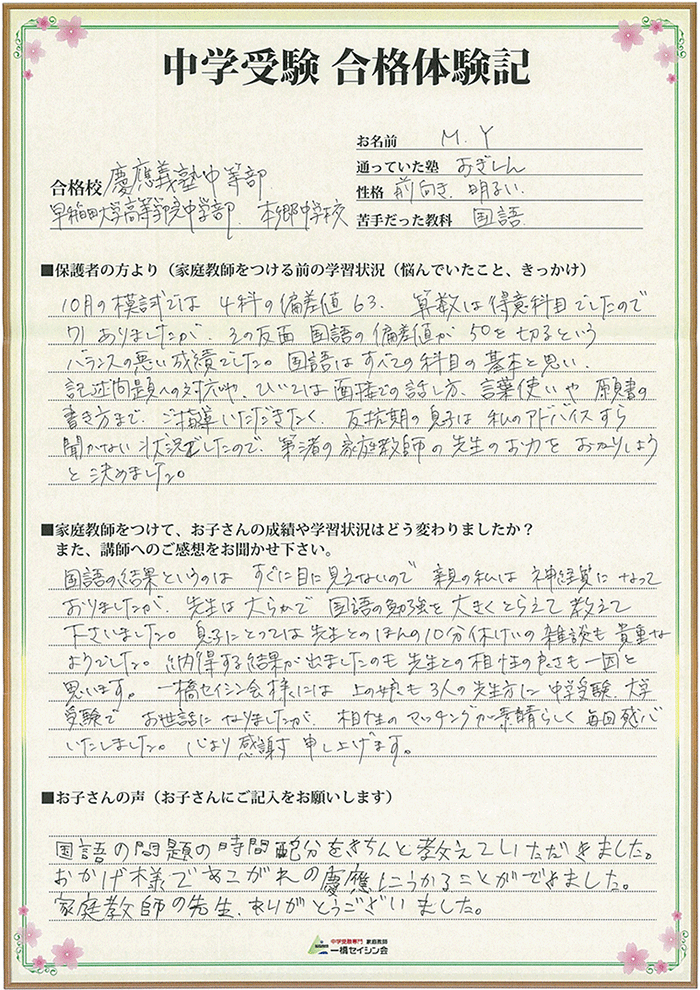 中学受験 合格体験記
お名前 M.Y
通っていた塾 おぎしん
合格校 慶應義塾中等部
性格 前向き、明るい
早稲田大学高等学院中学部、本郷中学校
苦手だった教科 国語
■保護者の方より（家庭教師をつける前の学習状況（悩んでいたこと、きっかけ）
10月の模試では 4科の偏差値63、算数は得意科目でしたので
71ありましたが、その反面 国語の偏差値が50を切るという
バランスの悪い成績でした。国語はすべての科目の基本と思い、
記述問題への対応や、ひいては面接での話し方、言葉使いや 願書の
書き方まで、ご指導いただきたく、反抗期の息子は私のアドバイスすら
聞かない状況でしたので、第三者の家庭教師の先生のお力をおかりしよう
と決めました。
■家庭教師をつけて、お子さんの成績や学習状況はどう変わりましたか？
また、講師へのご感想をお聞かせ下さい。
国語の結果というのは すぐに目に見えないので 親の私は神経質になって
おりましたが、先生は大らかで 国語の勉強を大きくとらえて教えて
下さいました。息子にとっては先生とのほんの10分休けいの雑談も貴重な
ようでした。納得する結果が出ましたのも先生との相性の良さも一因と
思います。一橋セイシン会様には 上の娘も3人の先生方に中学受験、大学
受験で お世話になりましたが、相性のマッチング力が素晴らしく毎回感心
いたしました。心より感謝申し上げます。
■お子さんの声（お子さんにご記入をお願いします）
国語の問題の時間配分をきちんと教えていただきました。
おかげ様であこがれの慶應にうかることができました。
家庭教師の先生、ありがとうございました。
中学受験専門 家庭教師
一橋セイシン会